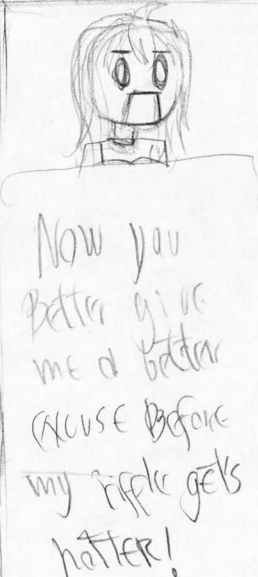 Now you
Better give
me a better
excuse Before
my riffle gets
hotter!